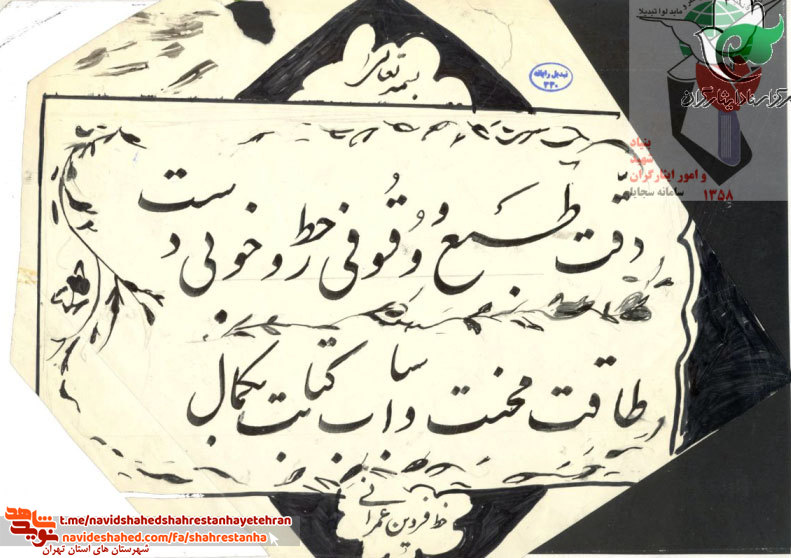 و ما بدلوا تبدیلا
مرکز اسناد ایثارگران
بسمه تعالی
تبدیل رایانه
۳۳۰
بنیاد
شهید
و امور ایثارگران
سامانه سجایا
۱۳۵۸
دقت طبع و وقوفی ز خط و خوبی دست
طاقت محنت و اسباب کتابت بکمال
خط فردین عمرانی
نوید شاهد
t.me/navidshahedshahrestanhayetehran
navideshahed.com/fa/shahrestanha
شهرستان های استان تهران